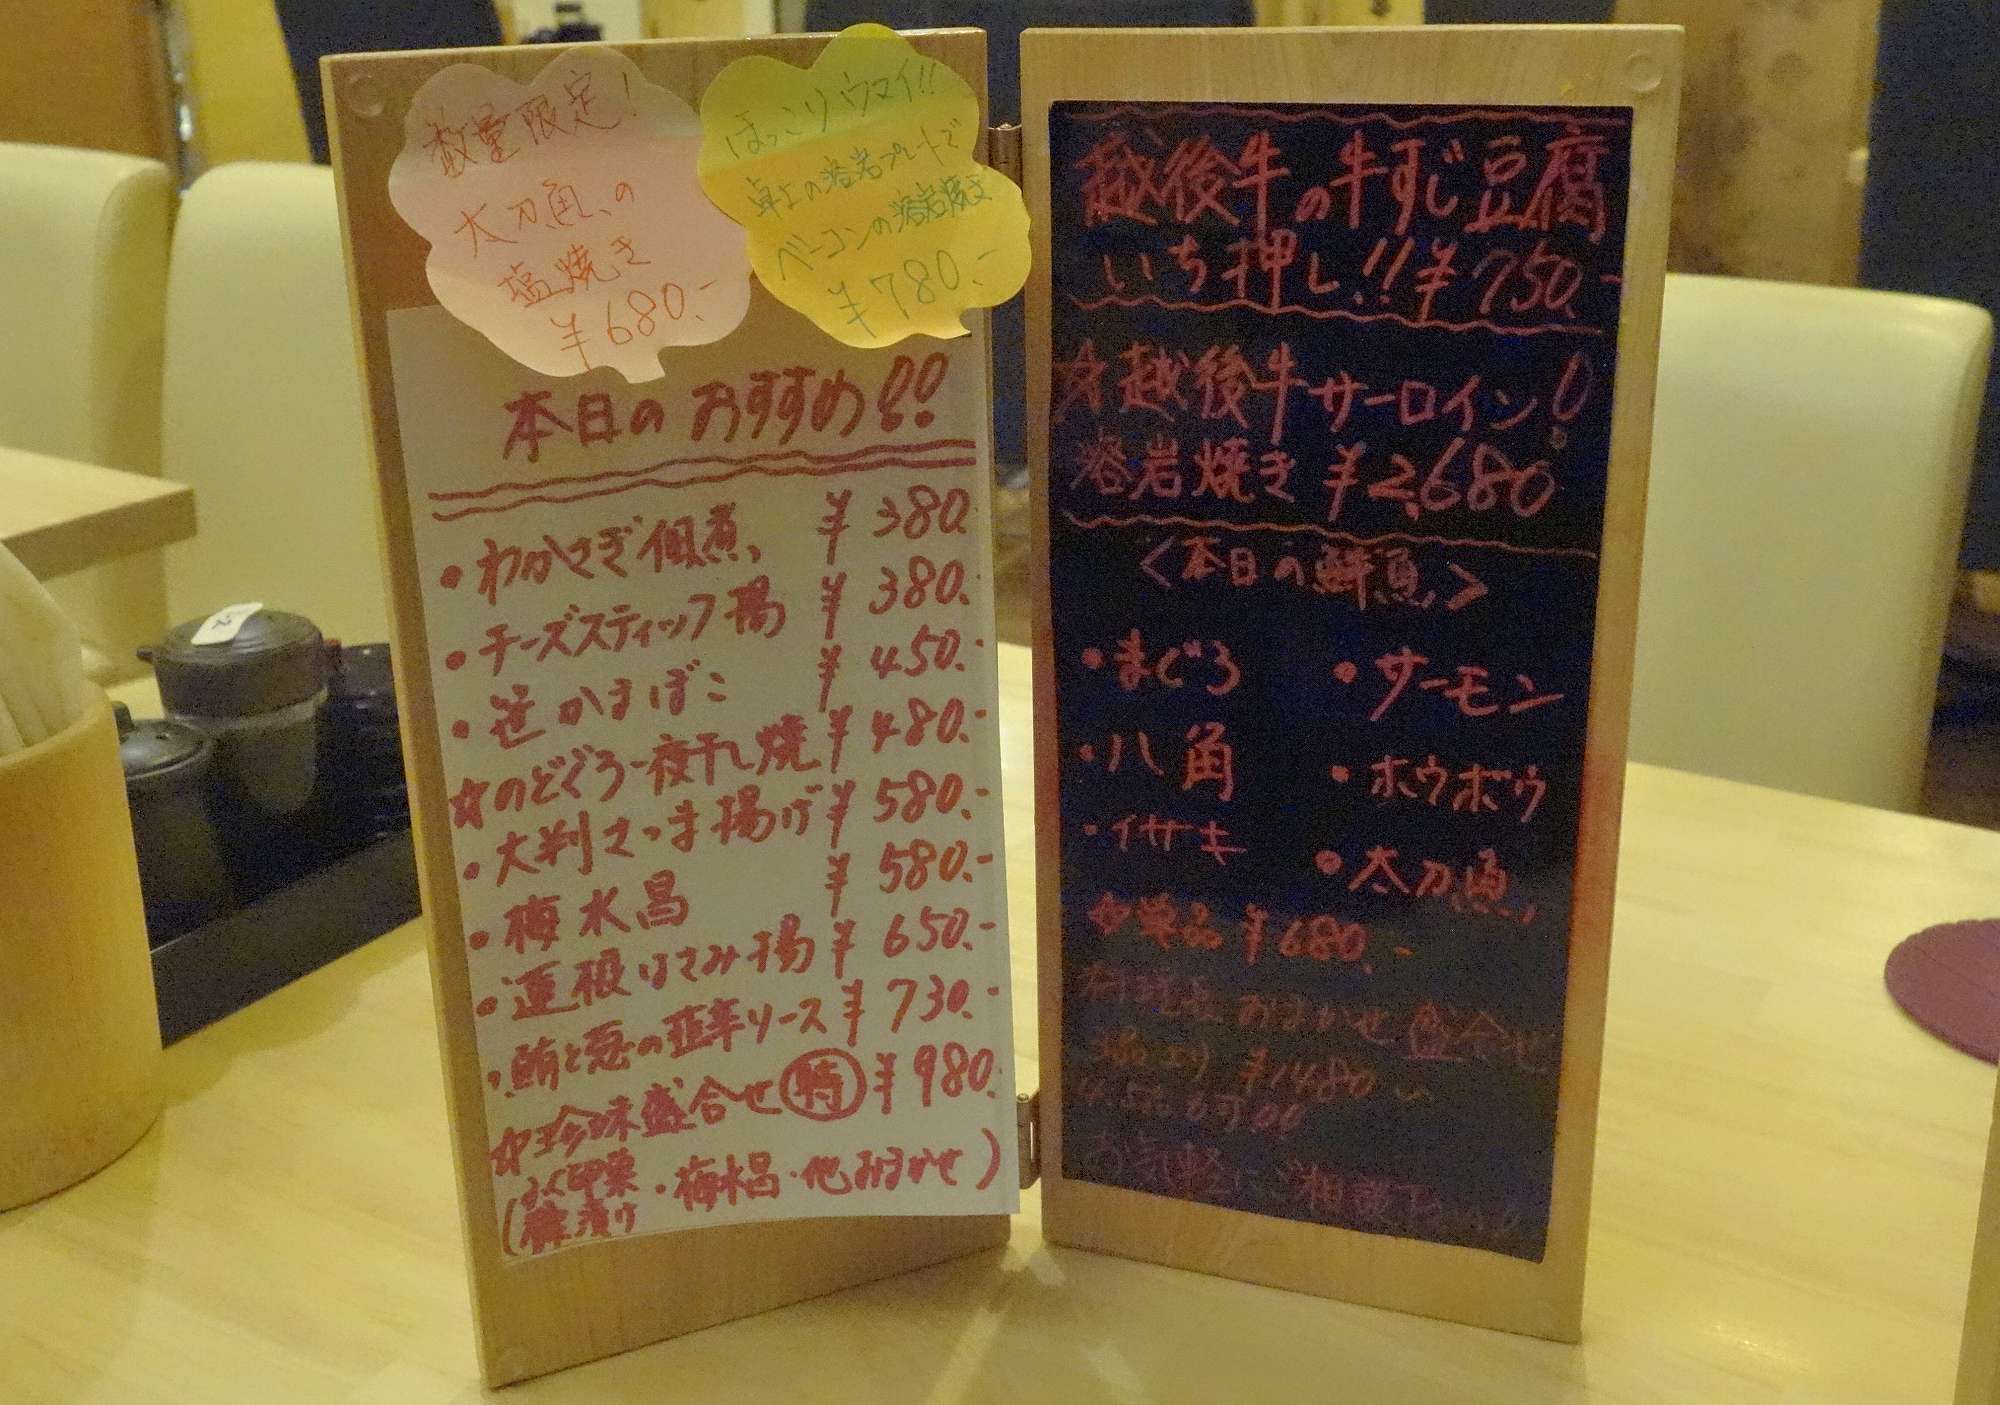 数量限定!
太刀魚の
塩焼き
¥680.-
ほっこりウマイ!!
卓上の溶岩プレートで
ベーコンの溶岩焼き
¥780.-
本日のおすすめ!!
・わかさぎ佃煮 ¥380.-
・チーズスティック揚 ¥380.-
・笹かまぼこ ¥450.-
☆のどぐろ一夜干し焼 ¥480.-
・大判さつま揚げ ¥580.-
・梅水晶 ¥580.-
・蓮根はさみ揚 ¥650.-
・鮪と葱の韮辛ソース ¥730.-
☆珍味盛合せ 特 ¥980.-
(ふぐ卵巣糠漬け・梅水晶・他おまかせ)
越後牛の牛すじ豆腐
いち押し!! ¥750.-
☆越後牛サーロイン!
溶岩焼き ¥2,680
<本日の鮮魚>
・まぐろ ・サーモン
・八角 ・ホウボウ
・イサキ ・太刀魚
☆単品 ¥680.-
料理長おまかせ盛合せ
3品より ¥1480〜
4.5品も可
お気軽にご相談下さい